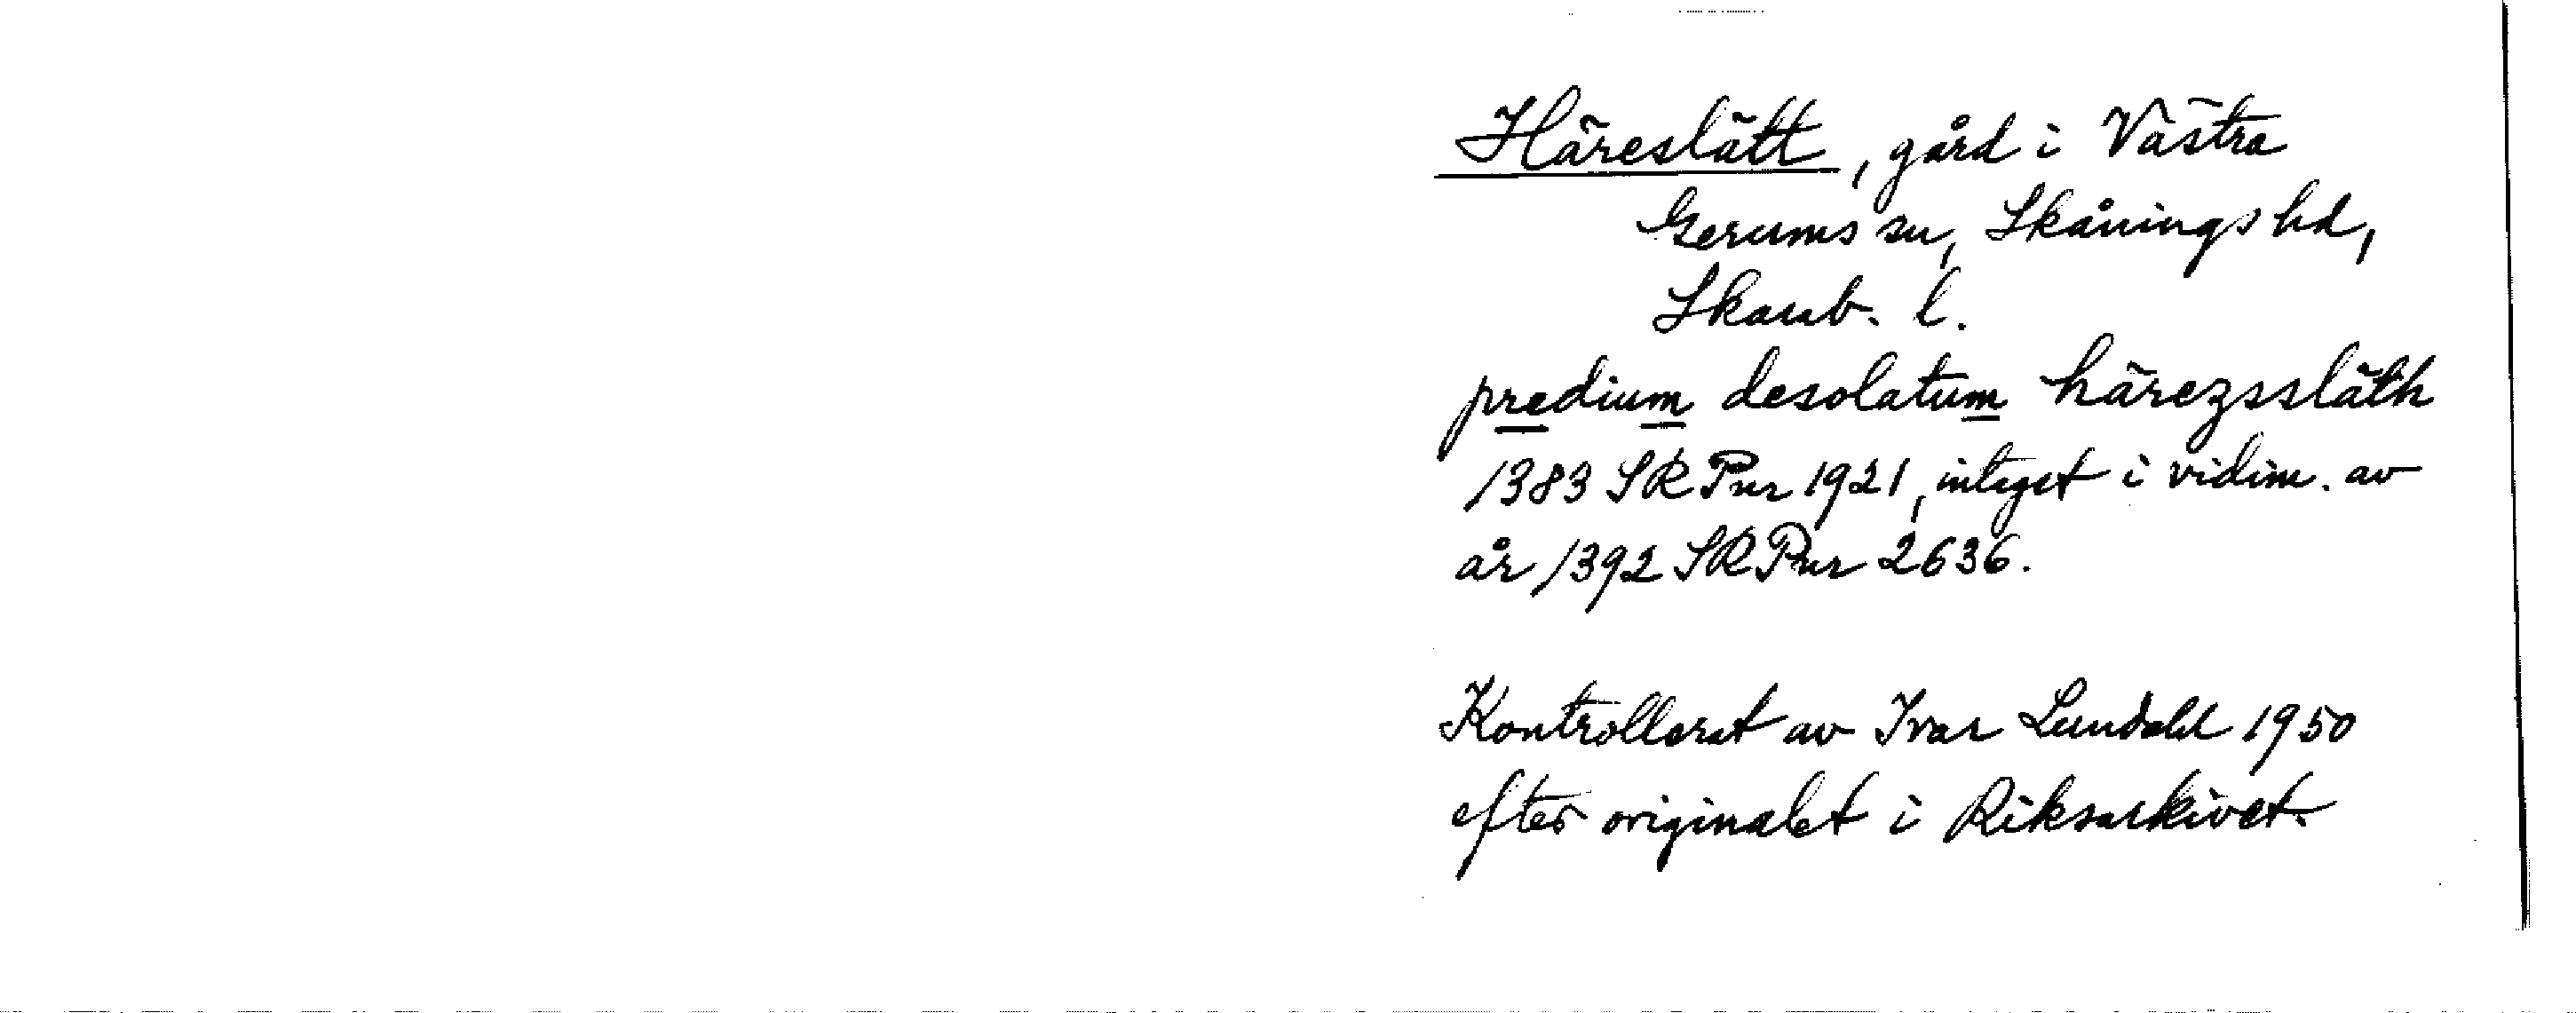 Häreslätt, gård i Västra
Gerums sn, Skånings hd,
Skarab. l.
predium desolatum härezssläth
1383 SRPnr 1921, intaget i vidim. av
år 1392 SRPnr 2636.
Kontrollerat av Ivar Lundahl 1950
efter originalet i Riksarkivet.